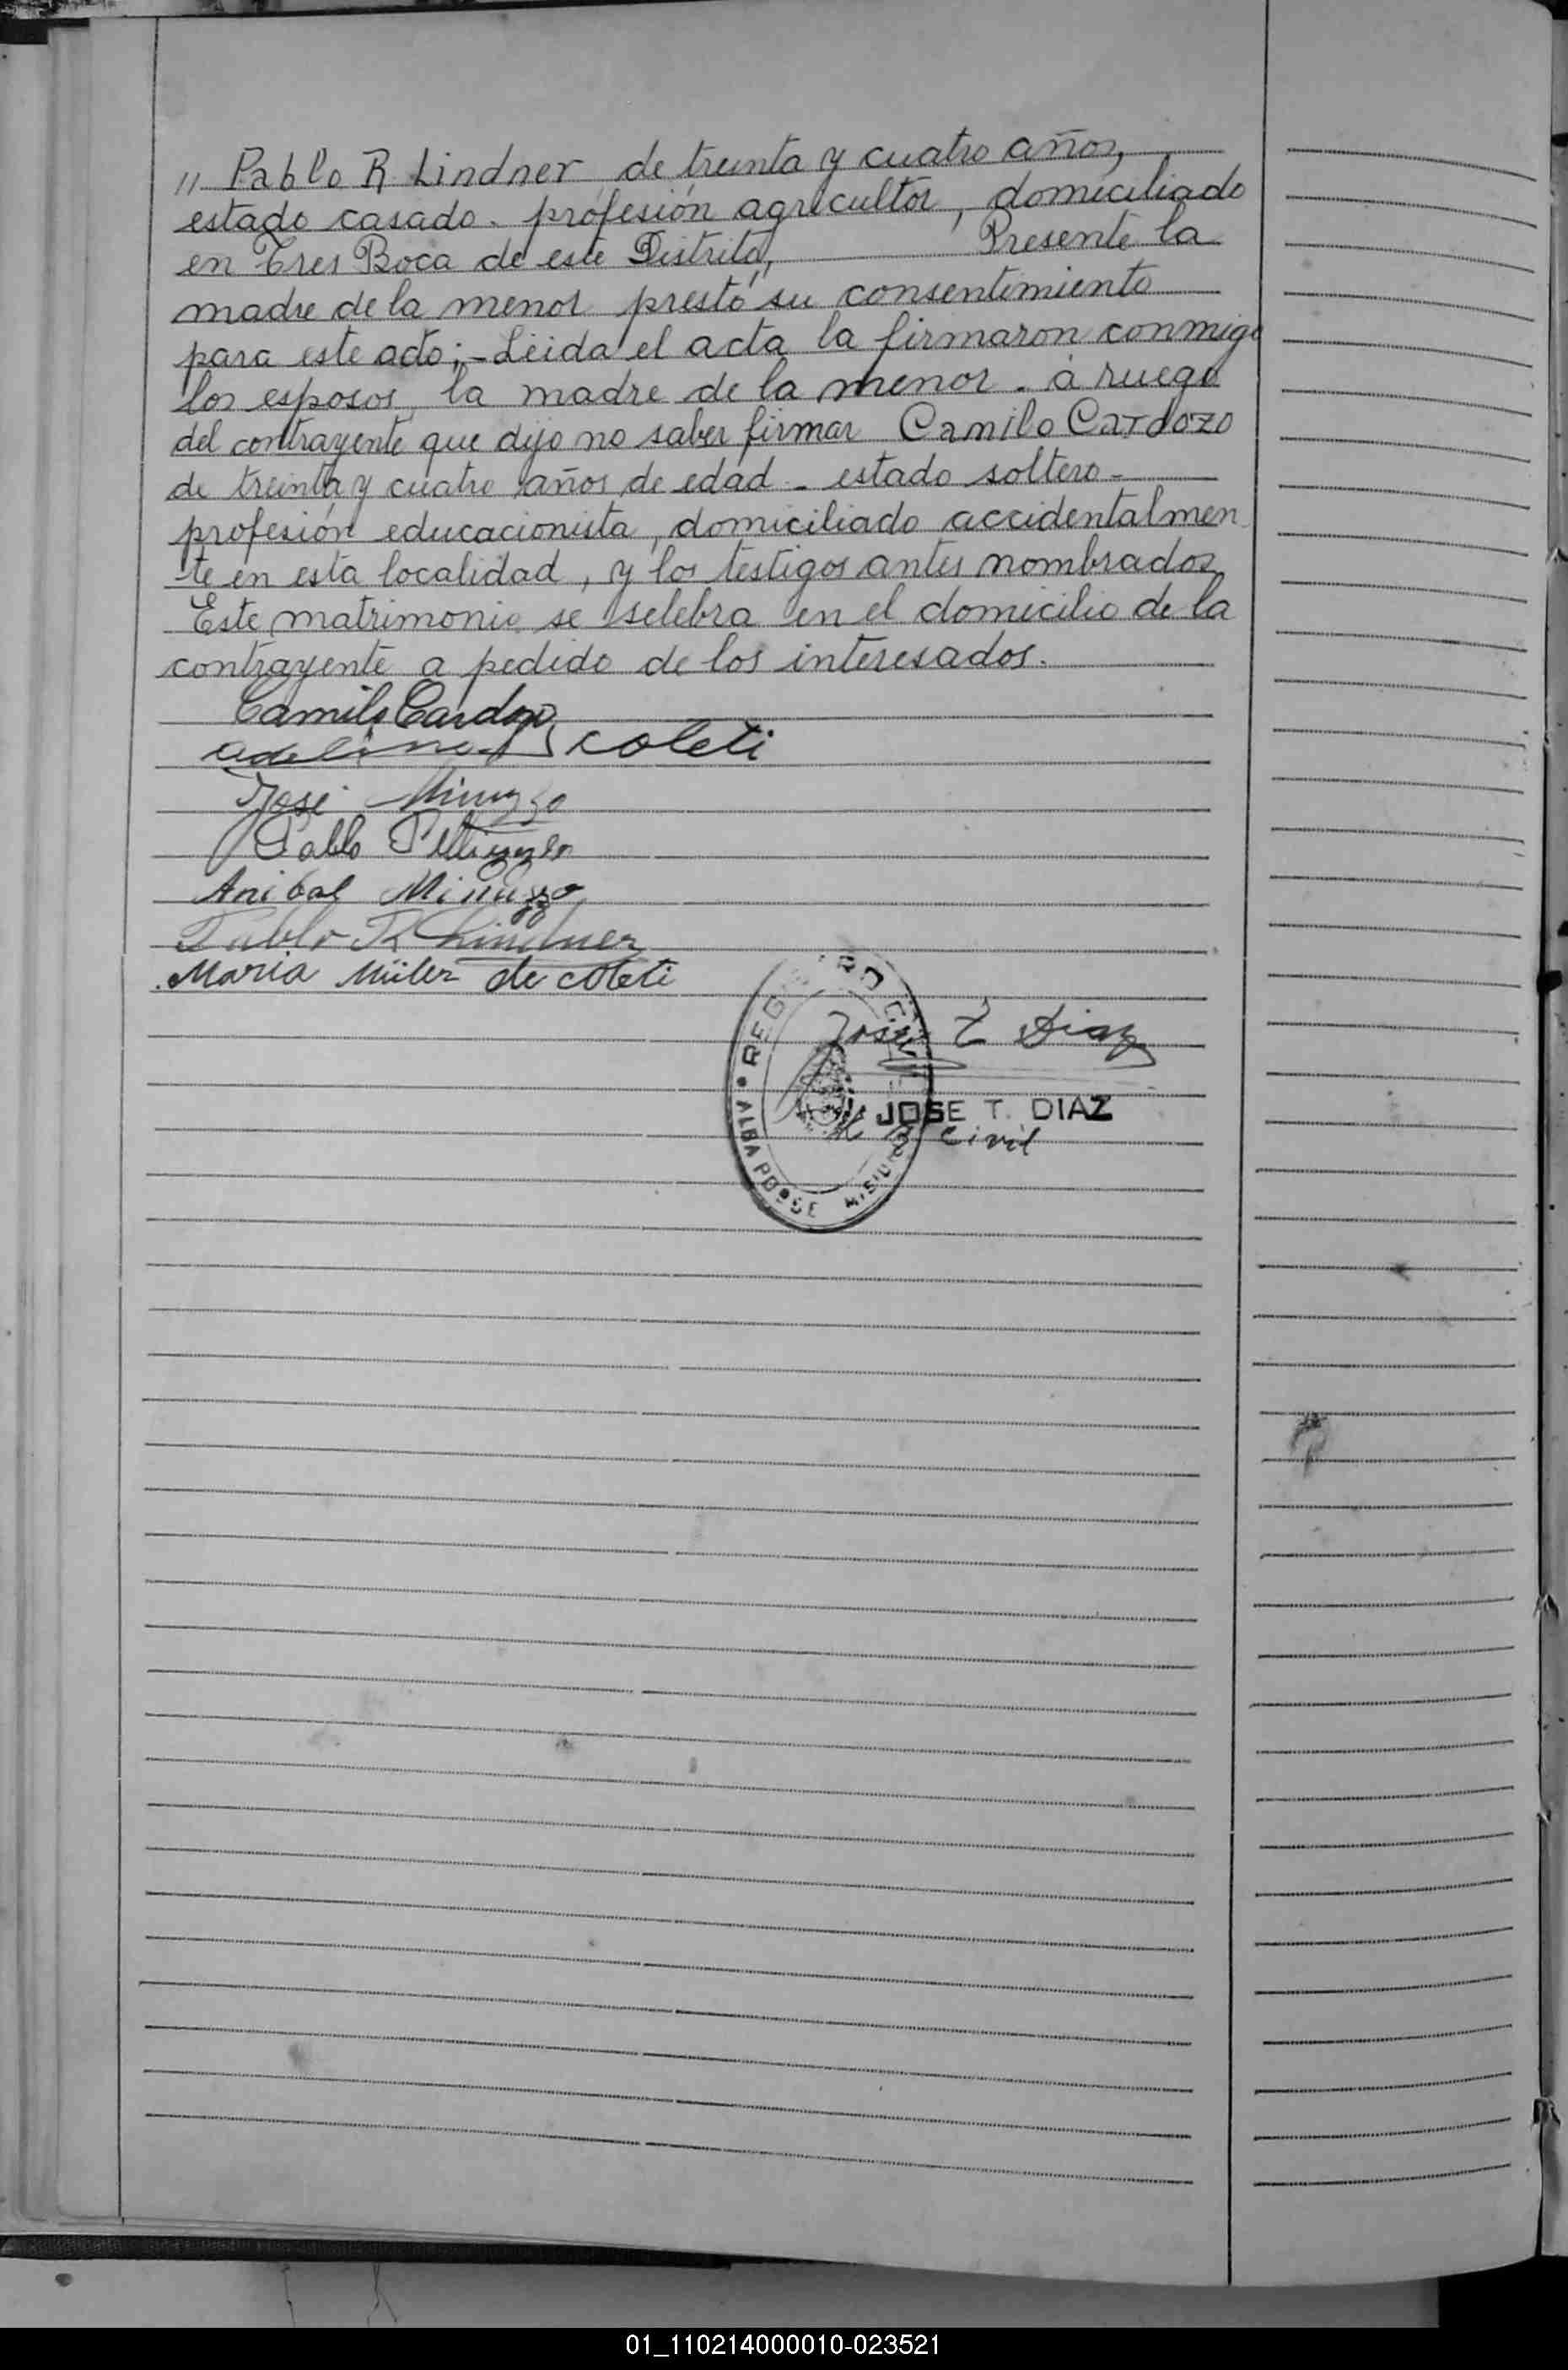 " Pablo R. Lindner, de treinta y cuatro años,
estado casado - profesión agricultor, domiciliado
en Tres Boca de este Distrito, Presente la
madre de la menor prestó su consentimiento
para este acto; - Leida el acta la firmaron conmigo
los esposos, la madre de la menor - á ruego
del contrayente que dijo no saber firmar Camilo Cardozo
de treinta y cuatro años de edad - estado soltero -
profesión educacionista, domiciliado accidentalmen
te en esta localidad, y los testigos antes nombrados
Este matrimonio se selebra en el domicilio de la
contrayente a pedido de los interesados.
Camilo Cardozo
adelina coleti
José Minuzzo
Pablo
Anibal Minuzzo
Pablo R Lindner
Maria Müler de coleti
REGISTRO CIVIL
José T Diaz
JOSE T. DIAZ
Civil
ALBA POSSE MISIONES
01_110214000010-023521